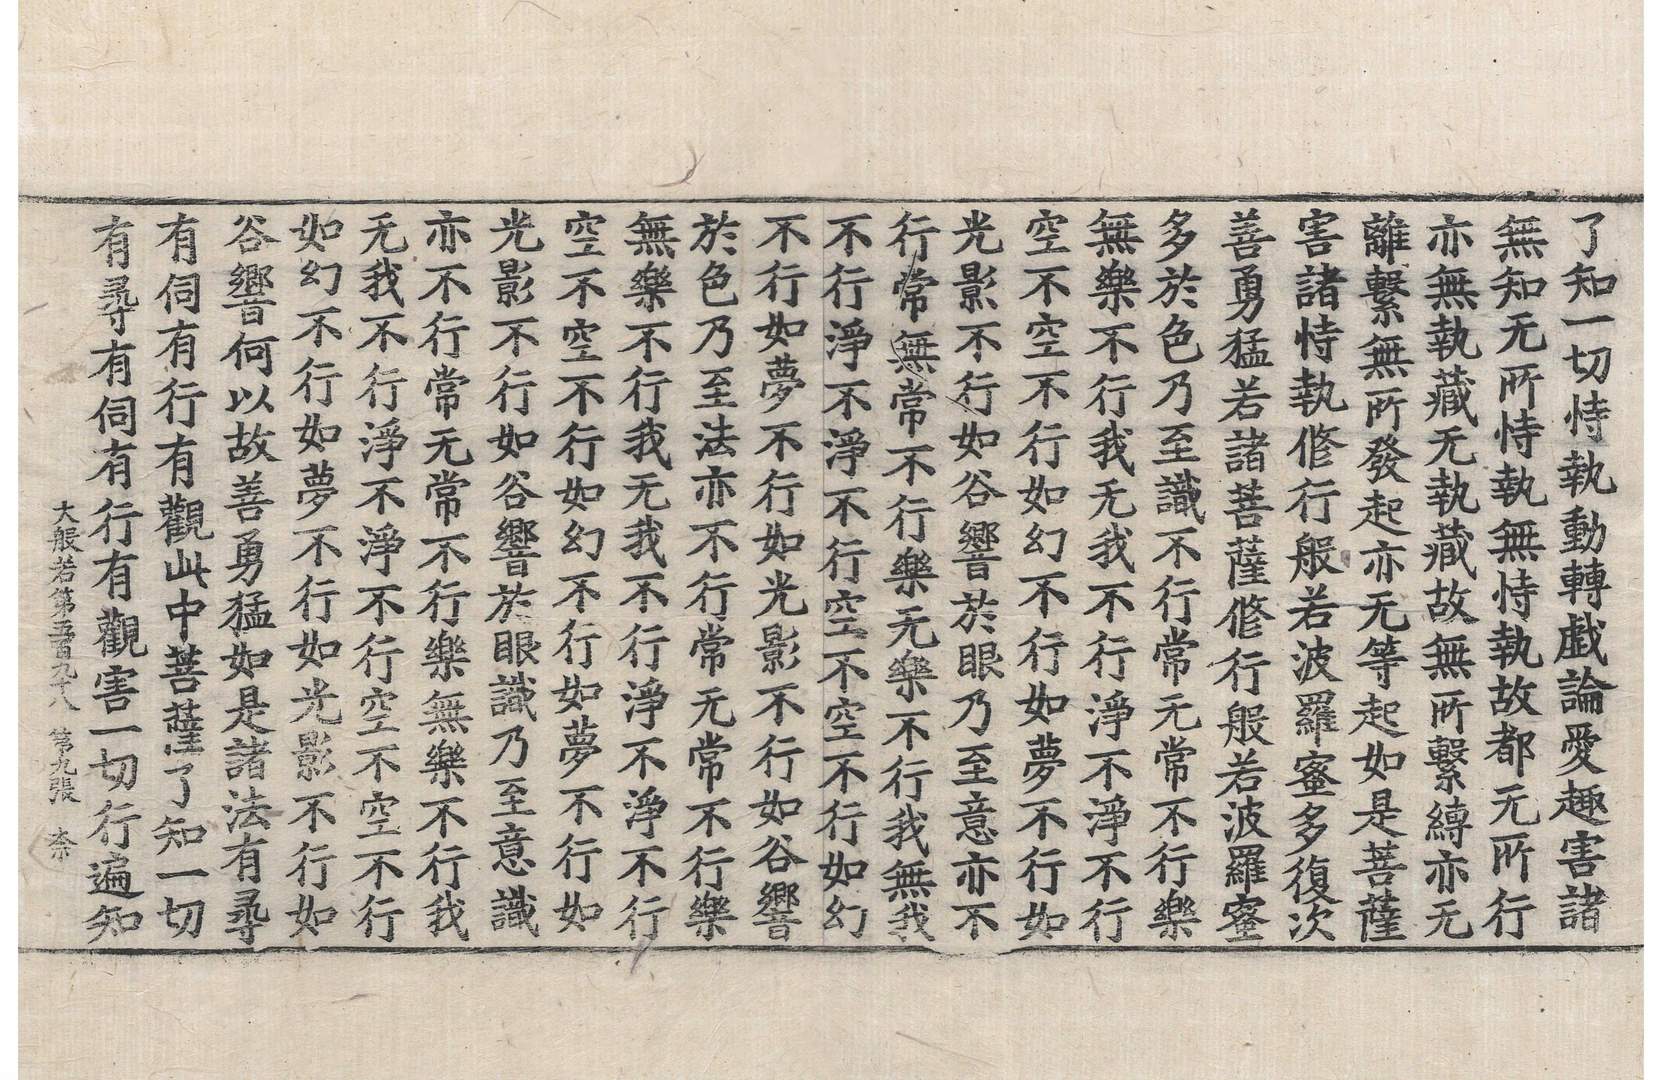 了知一切恃執動轉戱論愛趣害諸
無知无所恃執無恃執故都无所行
亦無執藏无執藏故無所繫縛亦无
離繫無所發起亦无等起如是菩薩
害諸恃執修行般若波羅蜜多復次
善勇猛若諸菩薩修行般若波羅蜜
多於色乃至識不行常无常不行樂
無樂不行我无我不行淨不淨不行
空不空不行如幻不行如夢不行如
光影不行如谷響於眼乃至意亦不
行常無常不行樂无樂不行我無我
不行淨不淨不行空不空不行如幻
不行如夢不行如光影不行如谷響
於色乃至法亦不行常无常不行樂
無樂不行我无我不行淨不淨不行
空不空不行如幻不行如夢不行如
光影不行如谷響於眼識乃至意識
亦不行常无常不行樂無樂不行我
无我不行淨不淨不行空不空不行
如幻不行如夢不行如光影不行如
谷響何以故善勇猛如是諸法有尋
有伺有行有觀此中菩薩了知一切
有尋有伺有行有觀害一切行遍知
大般若第五百九十八 第九張 柰